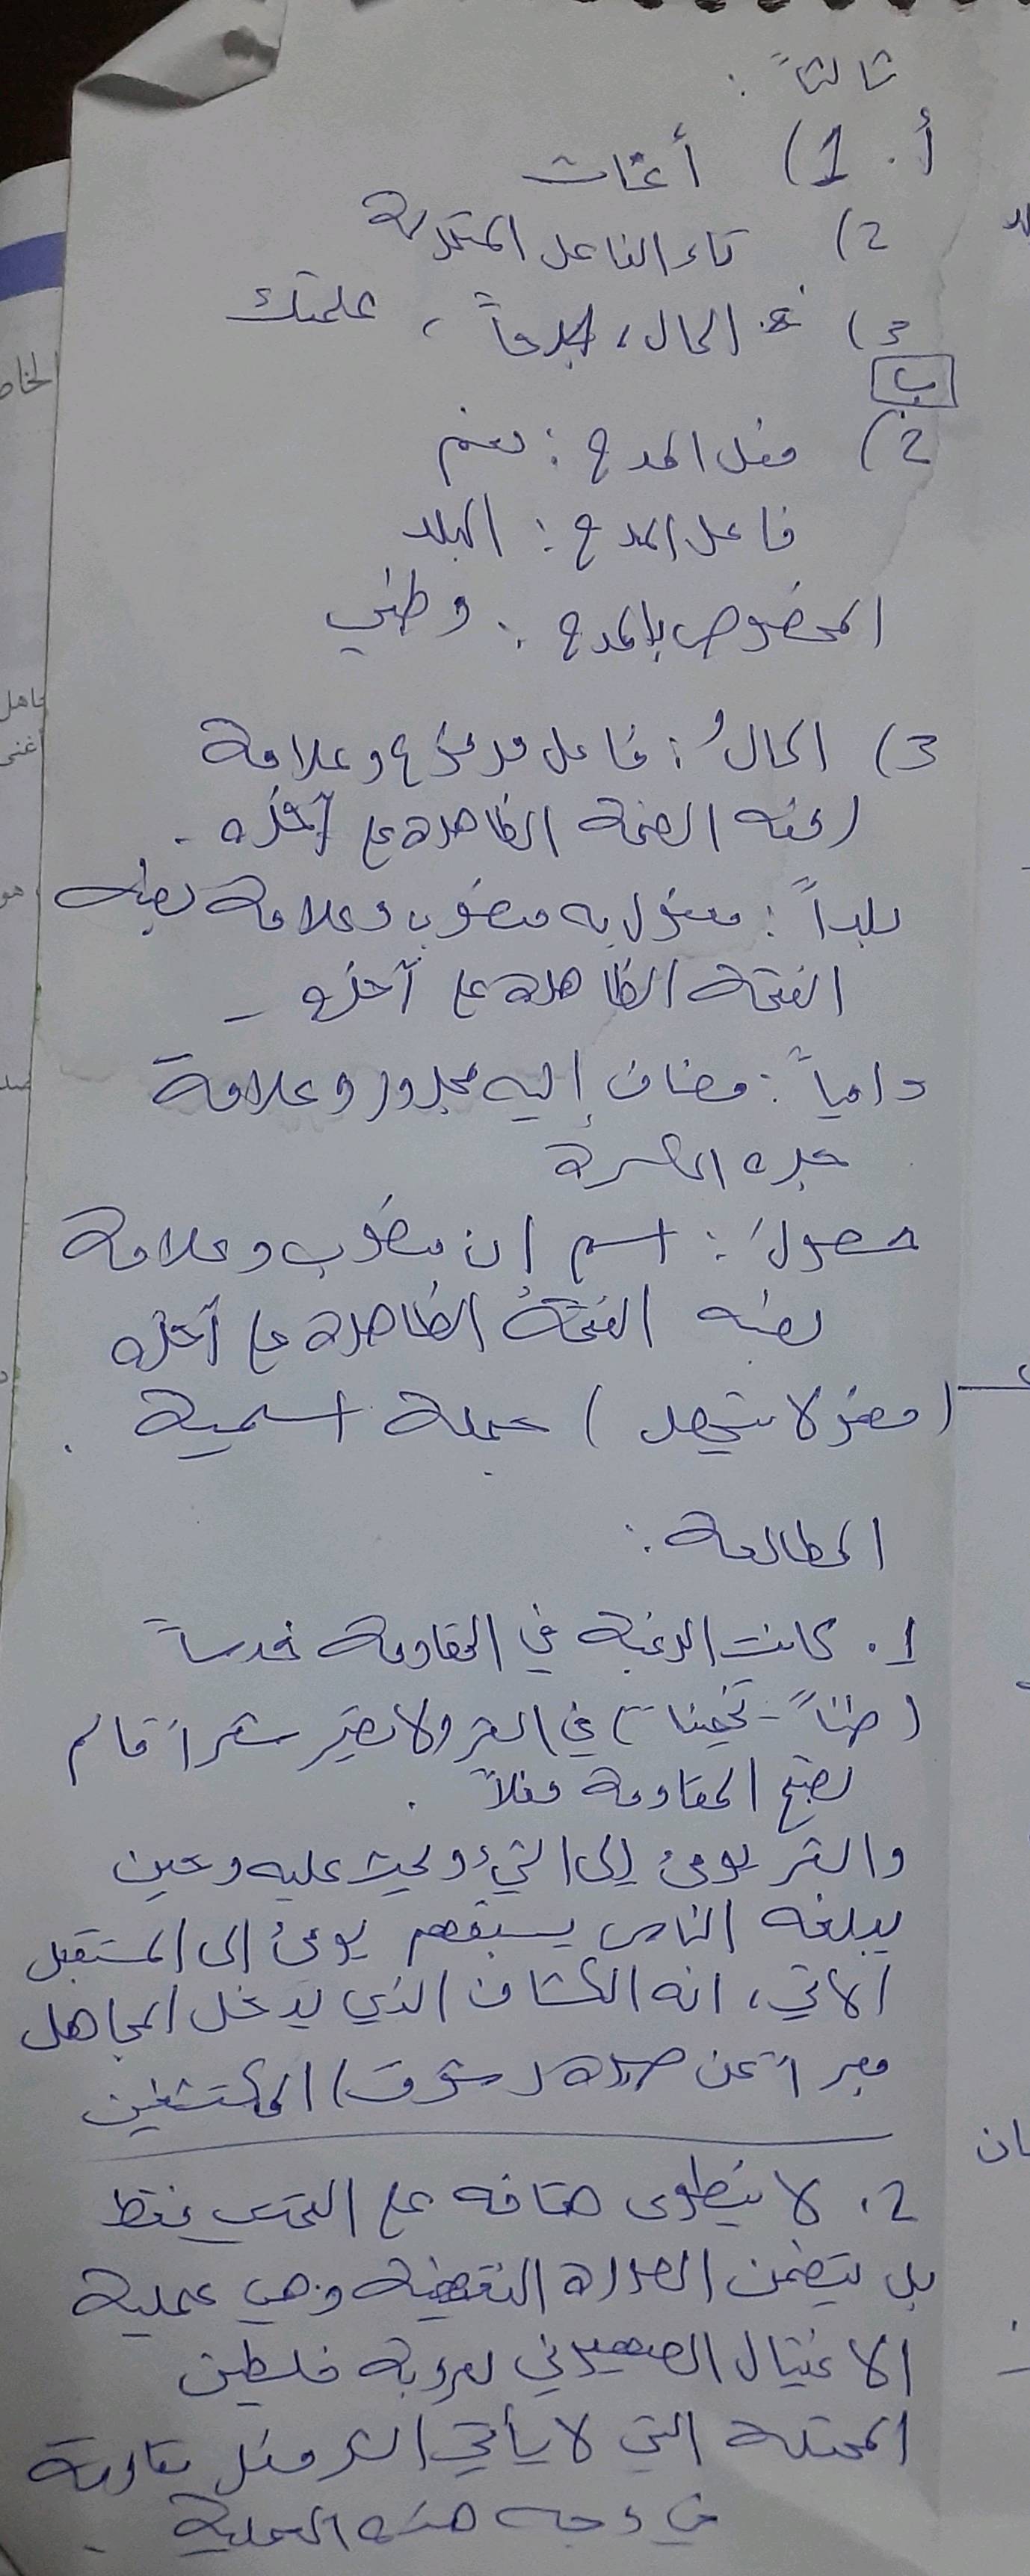 ثالثاً :
أ. 1) أغاث
2) تاء الفاعل المتحركة
3) الحال، ، علمتك
ب
2) فعل المدح : نعم
فاعل المدح : البلد
المخصوص بالمدح : وطني
3) الحالُ : فاعل مرفوع وعلامة
رفعه الضمة الظاهرة على آخره .
بلداً : مفعول به منصوب وعلامة نصبه
الفتحة الظاهرة على آخره
دامياً : مضاف إليه مجرور وعلامة
جره الكسرة
حصولَ : اسم إن منصوب وعلامة
نصبه الفتحة الظاهرة على آخره
( ) جملة اسمية .
المطالعة :
1. كانت الرغبة في المقاومة حدساً
(ظناً - تخميناً) في النثر والأخير شعراً قائم
نضج المقاومة فعلاً .
والشعر يومئ إلى الشيء ويحث عليه وحين
يبلغه الناس يسبقهم يومئ إلى المستقبل
الآتي، انه الكشاف الذي يدخل المجاهل
معبراً عن (شوق) المكتشفين
2. لا ينطوي هتافه على التحدي فقط
بل يتضمن الصورة النقيضة وهي عملية
الاغتيال الصهيوني لعروبة فلسطين
المحتلة التي لا يأتي الا فعل مقاومة
في وجه هذه العملية .
الخاص
جاهل
أغنى
هو